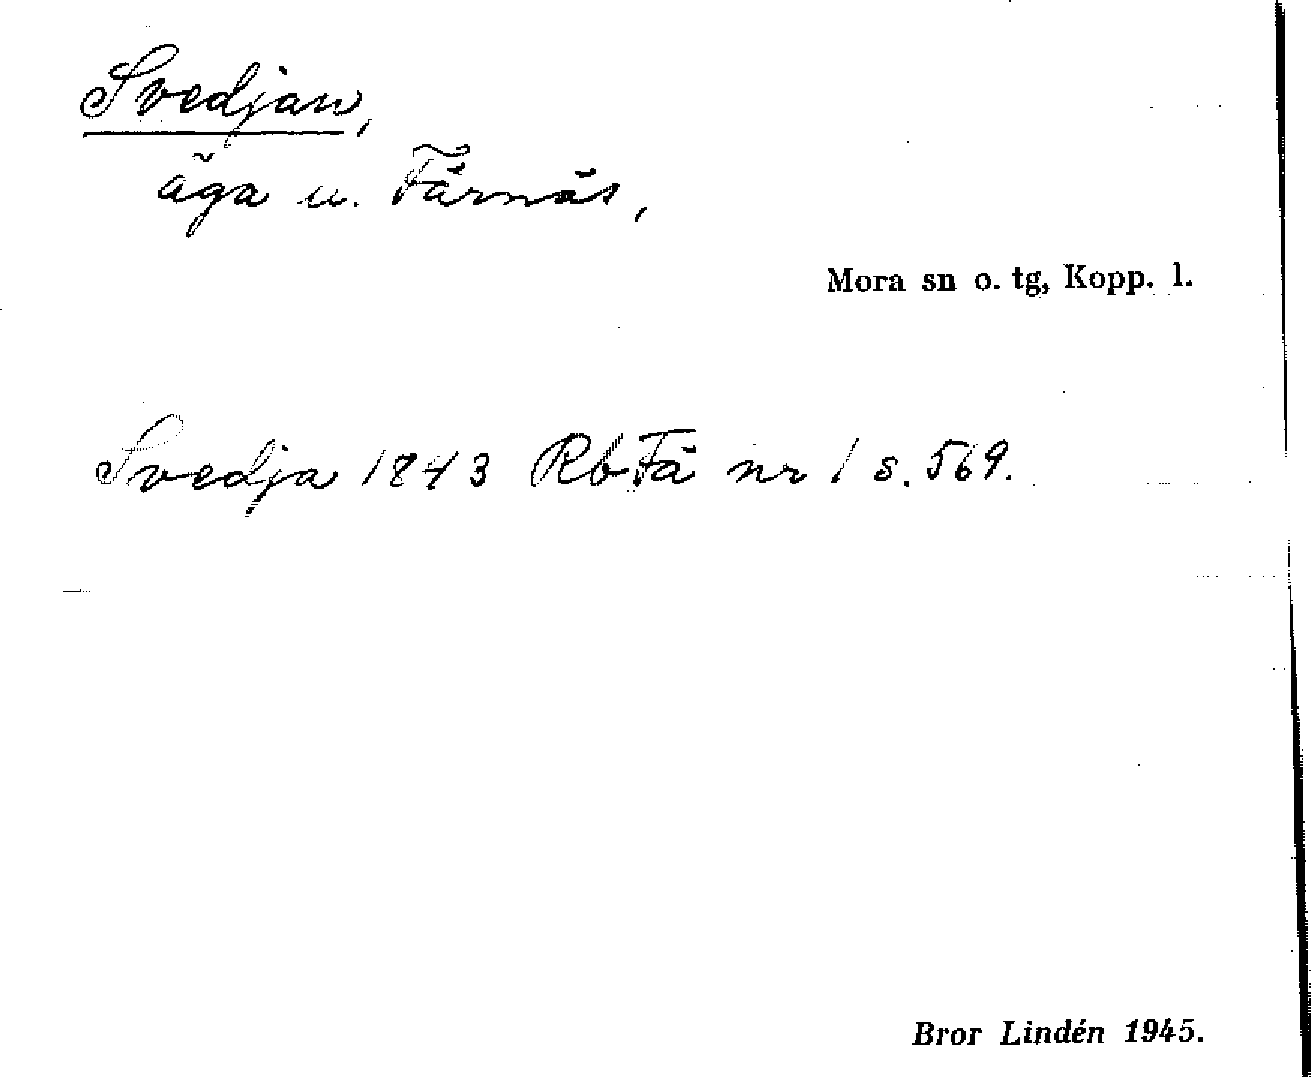 Svedjan,
äga u. Färnäs,
Mora sn o. tg, Kopp. l.
Svedja 1843 Rb Fä nr 1 s. 569.
Bror Lindén 1945.